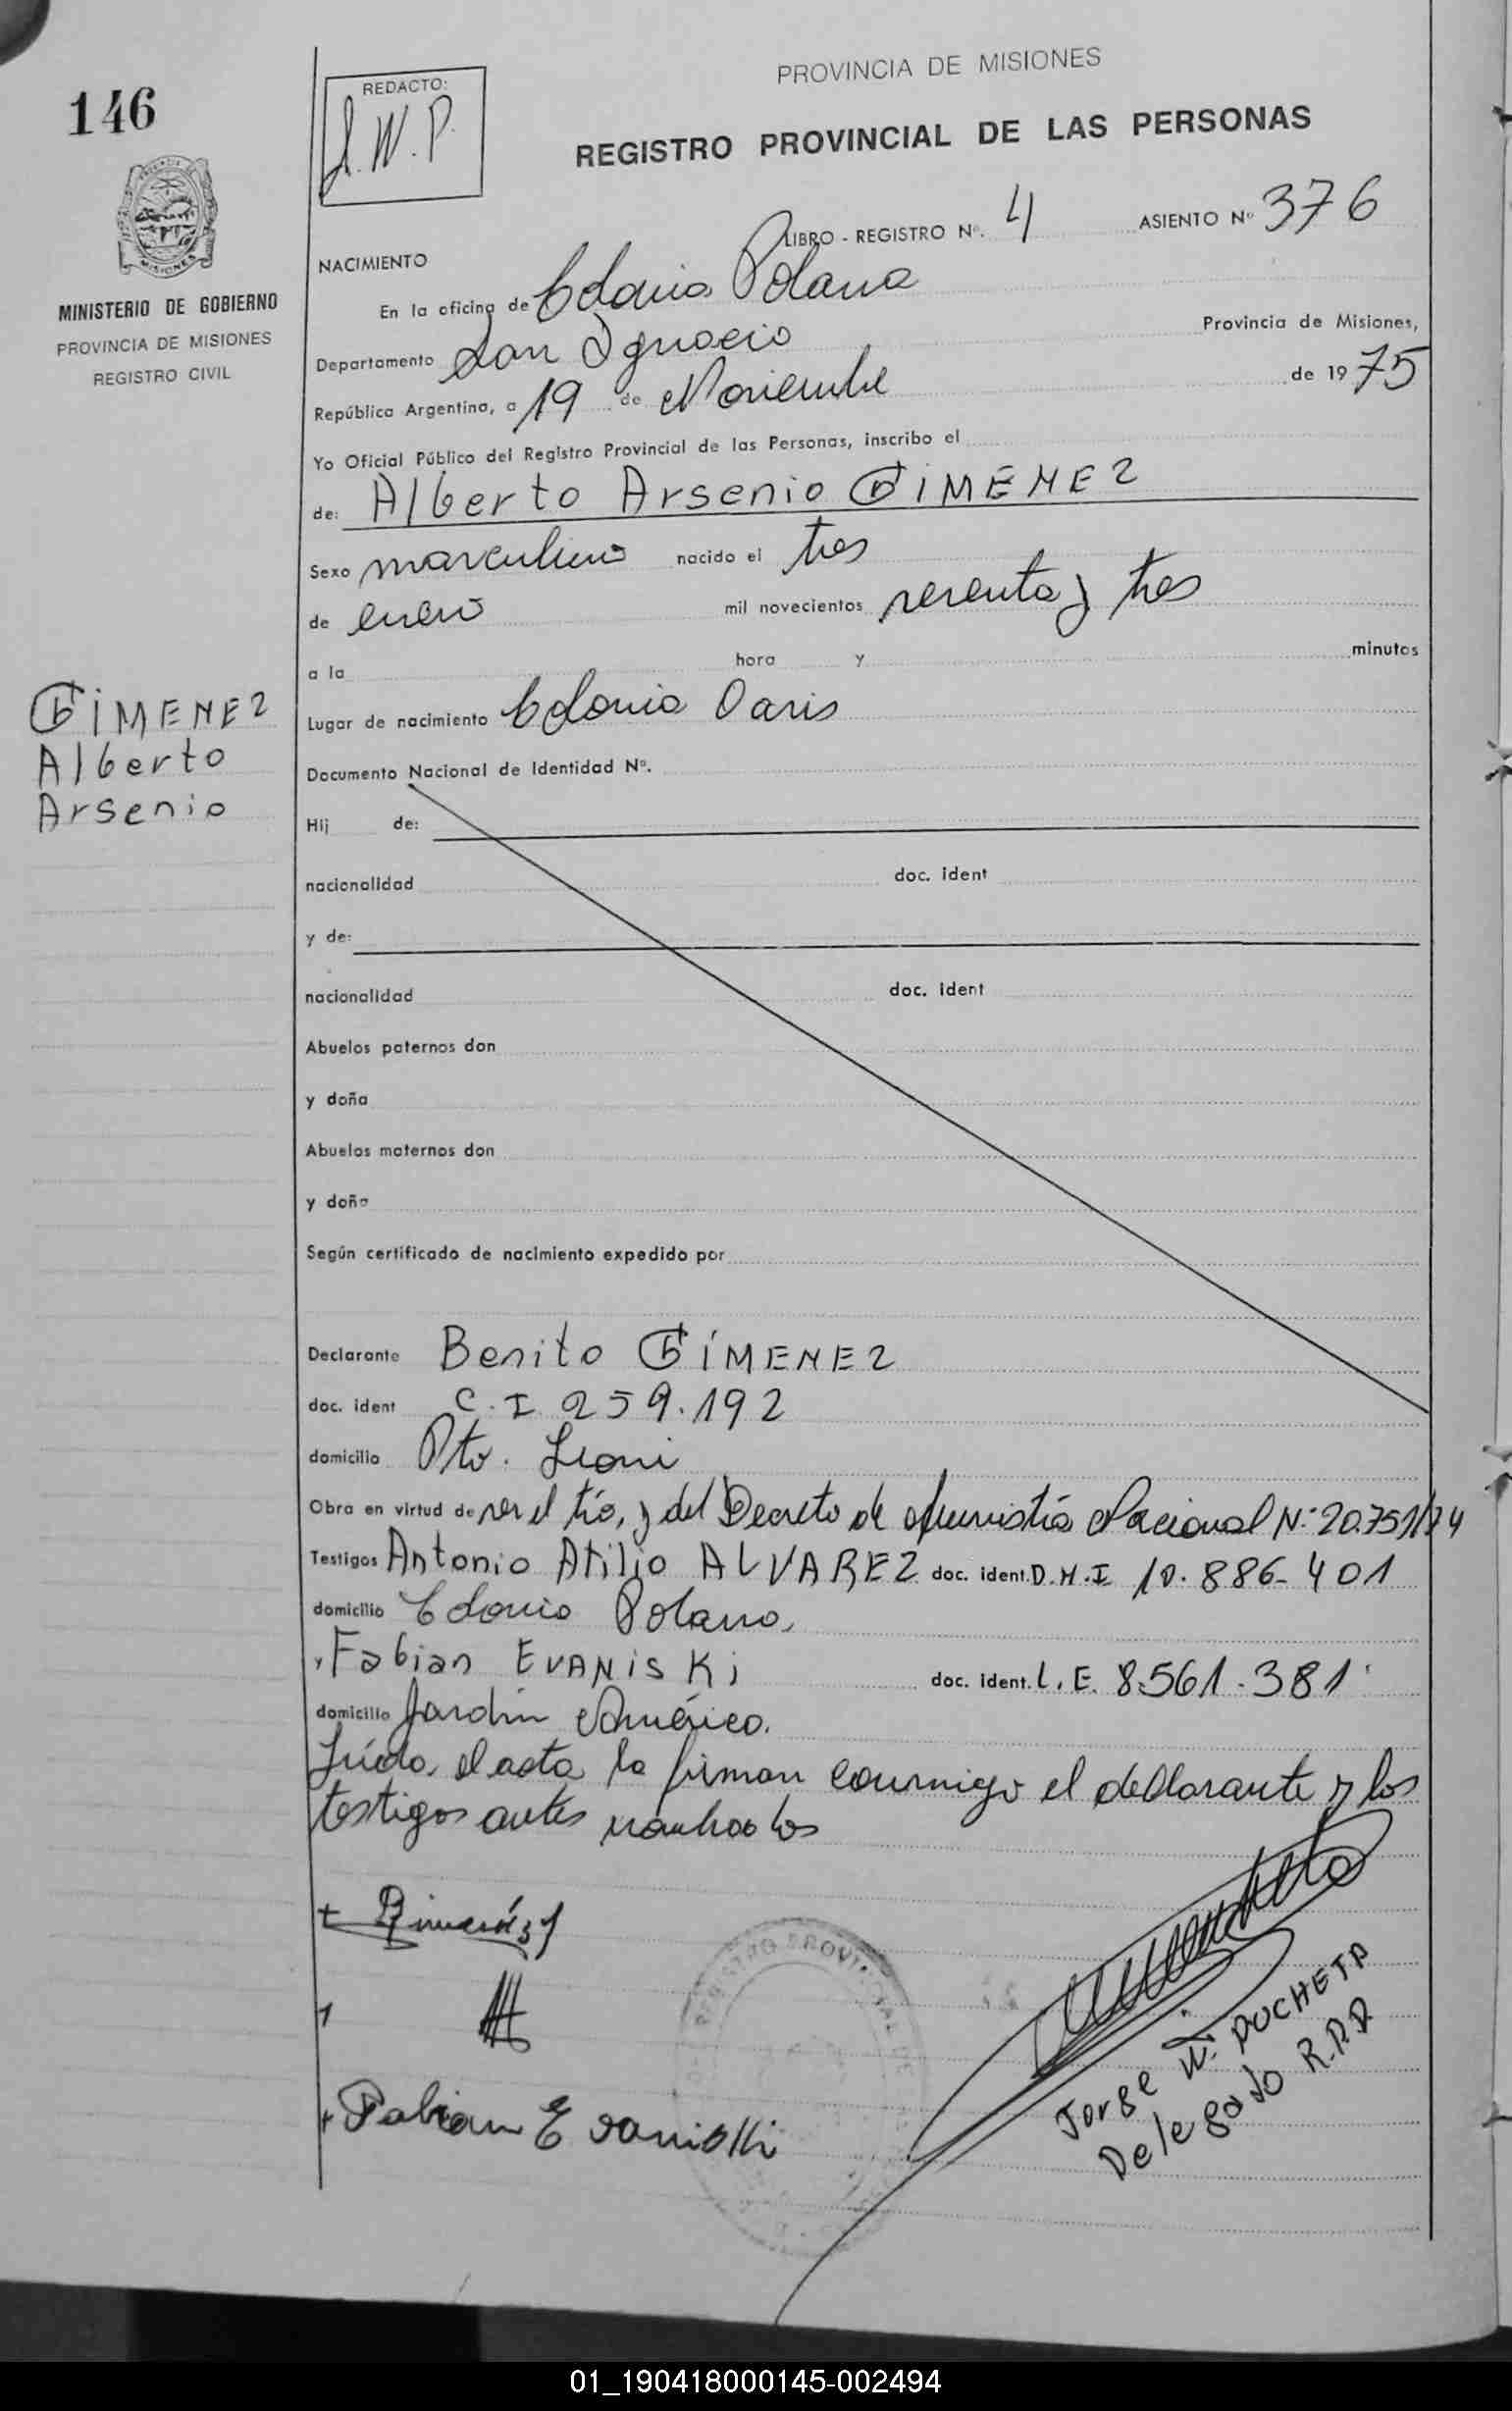 146
REDACTO:
J.W.P.
PROVINCIA DE MISIONES
REGISTRO PROVINCIAL DE LAS PERSONAS
MISIONES
MINISTERIO DE GOBIERNO
PROVINCIA DE MISIONES
REGISTRO CIVIL
LIBRO - REGISTRO Nº. 4 ASIENTO Nº 376
NACIMIENTO
En la oficina de Colonia Polana
Departamento San Ignacio Provincia de Misiones,
República Argentina, a 19 de Noviembre de 1975
Yo Oficial Público del Registro Provincial de las Personas, inscribo el
de: Alberto Arsenio GIMENEZ
Sexo masculino nacido el tres
de enero mil novecientos sesenta y tres
a la hora y minutos
GIMENEZ
Alberto
Arsenio
Lugar de nacimiento Colonia Oasis
Documento Nacional de Identidad Nº.
Hij de:
nacionalidad doc. ident
y de:
nacionalidad doc. ident
Abuelos paternos don
y doña
Abuelos maternos don
y doña
Según certificado de nacimiento expedido por
Declarante Benito GIMENEZ
doc. ident C.I. 259.192
domicilio Pto. Leoni
Obra en virtud de ser el tío, y del Decreto de Amnistía Nacional N° 20.751/74
Testigos Antonio Atilio ALVAREZ doc. ident. D.N.I 10.886-401
domicilio Colonia Polana,
Fabian EVANISKi doc. ident. L.E. 8.561.381
domicilio Jardín América.
Leída el acta la firman conmigo el declarante y los
testigos antes nombrados
Fabian Evaniski
REGISTRO PROVINCIAL DE
Jorge W. DUCHETA
Delegado R.P.P
01_190418000145-002494